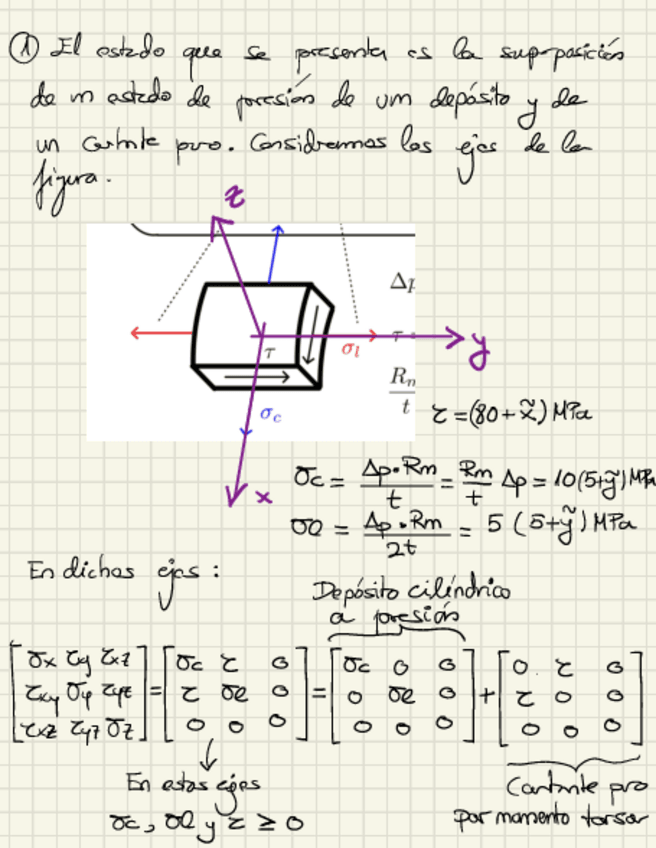 ① El estado que se presenta es la superposición
de un estado de presión de un depósito y de
un cortante puro. Consideramos los ejes de la
figura.
z
Δp
y
τ
σl
τ =
Rm
t
σc
τ = (80 + x̃) MPa
x
σc = Δp·Rm / t = Rm / t Δp = 10(5+ỹ) MPa
σl = Δp·Rm / 2t = 5 (5+ỹ) MPa
En dichos ejes:
Depósito cilíndrico
a presión
[σx τxy τxz] = [σc τ 0] = [σc 0 0] + [0 τ 0]
[τxy σy τyz] = [τ σl 0] = [0 σl 0] + [τ 0 0]
[τxz τyz σz] = [0 0 0] = [0 0 0] + [0 0 0]
En estos ejes
σc, σl y τ ≥ 0
Cortante puro
por momento torsor